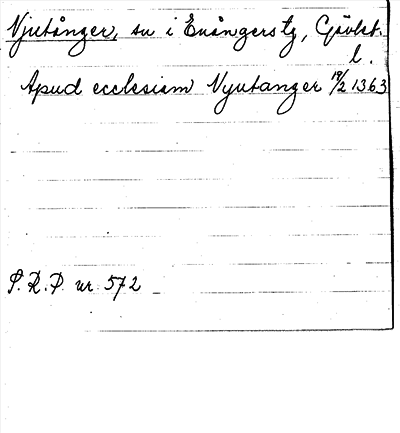 Njutånger, sn i Enångers tg, Gävleb.
l.
Apud ecclesiam Nyutanger 19/2 1363
S.R.P. nr 572